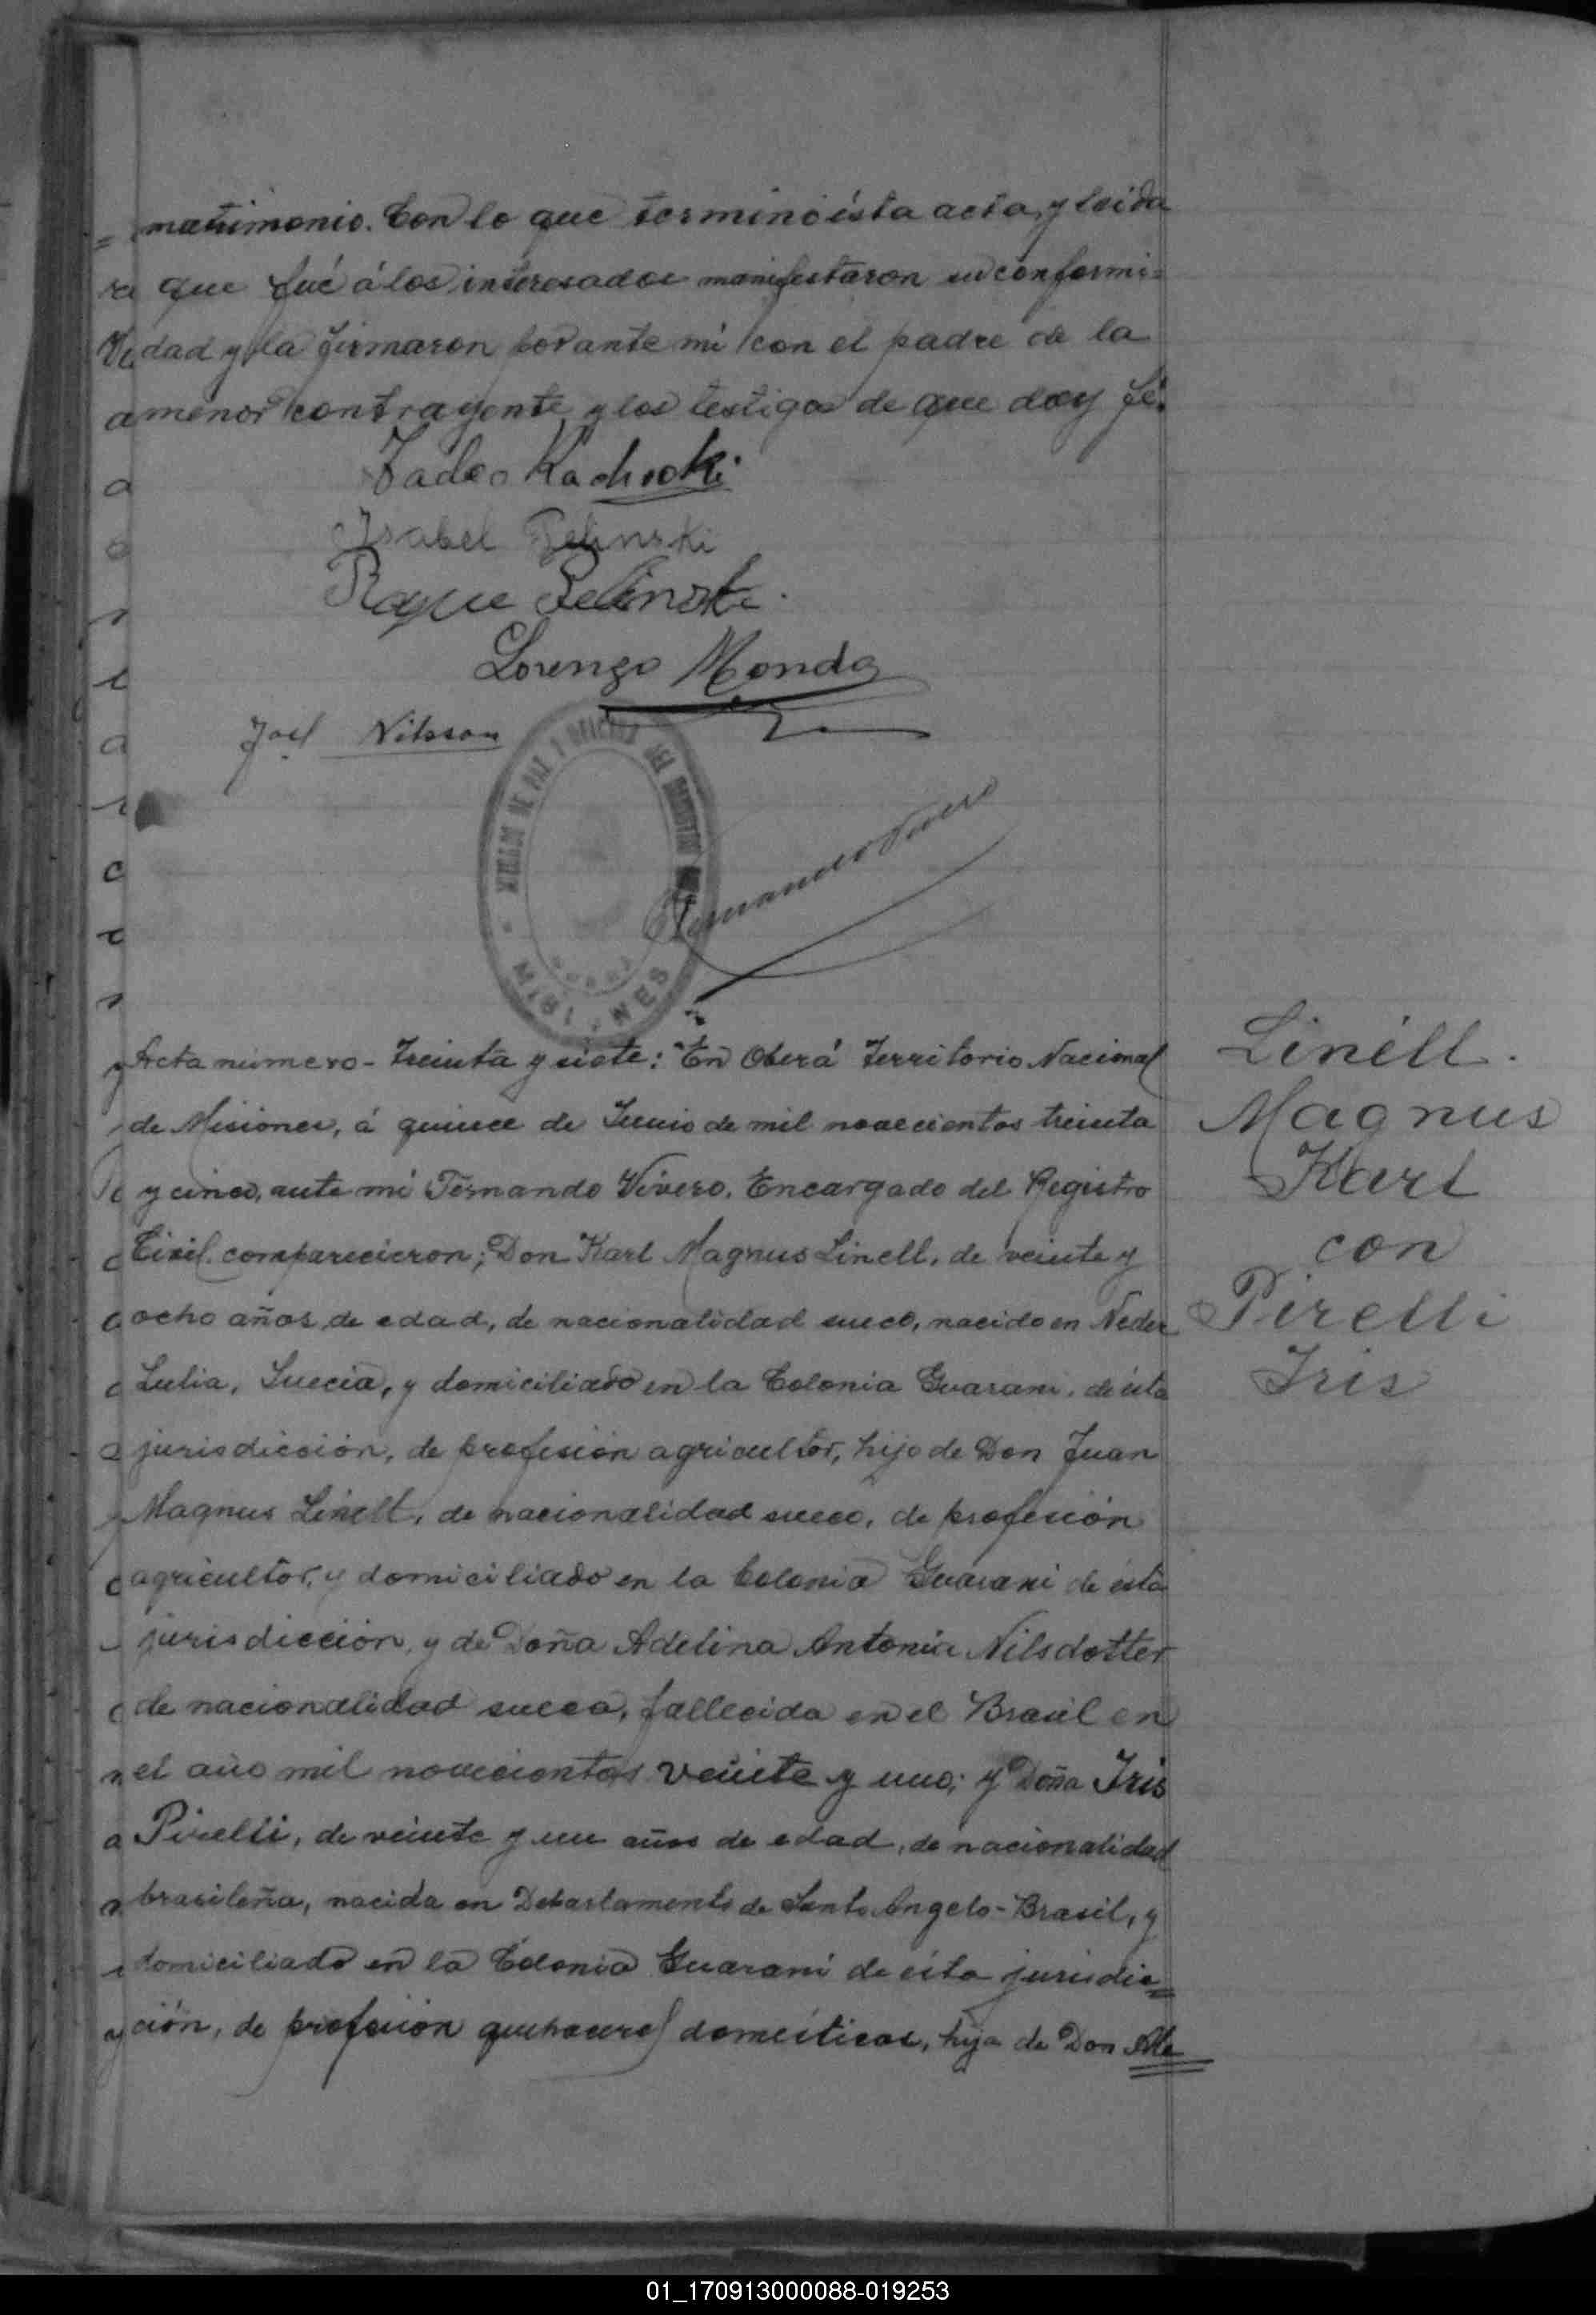 matrimonio. Con lo que terminó ésta acta, y leida
que fué á los interesados manifestaron su conformi=
dad y la firmaron por ante mi con el padre de la
menor contrayente y los testigos de que doy fé.
Tadeo
Isabel Zelinski
Roque Zelinski
Lorenzo Monda
Joel Nilsson
JUZGADO DE PAZ Y OFICINA DEL REGISTRO
MISIONES
Fernando Vivero
Acta número - Treinta y siete: En Oberá Territorio Nacional
de Misiones, á quince de Junio de mil novecientos treinta
y cinco, ante mi Fernando Vivero, Encargado del Registro
Civil. comparecieron; Don Karl Magnus Linell, de veinte y
ocho años de edad, de nacionalidad sueco, nacido en Neder
Lulia, Suecia, y domiciliado en la Colonia Guarani, de ésta
jurisdicción, de profesión agricultor, hijo de Don Juan
Magnus Linell, de nacionalidad sueco, de profesión
agricultor, y domiciliado en la Colonia Guarani de ésta
jurisdicción, y de Doña Adelina Antonia Nilsdotter
de nacionalidad sueca, fallecida en el Brasil en
el año mil novecientos veinte y uno; y Doña Iris
Pirelli, de veinte y un años de edad, de nacionalidad
brasileña, nacida en Departamento de Santo Angelo - Brasil, y
domiciliado en la Colonia Guaraní de ésta jurisdic=
ción, de profesión quehaceres domésticos, hija de Don Ale
Linell.
Magnus
Karl
con
Pirelli
Iris
01_170913000088-019253